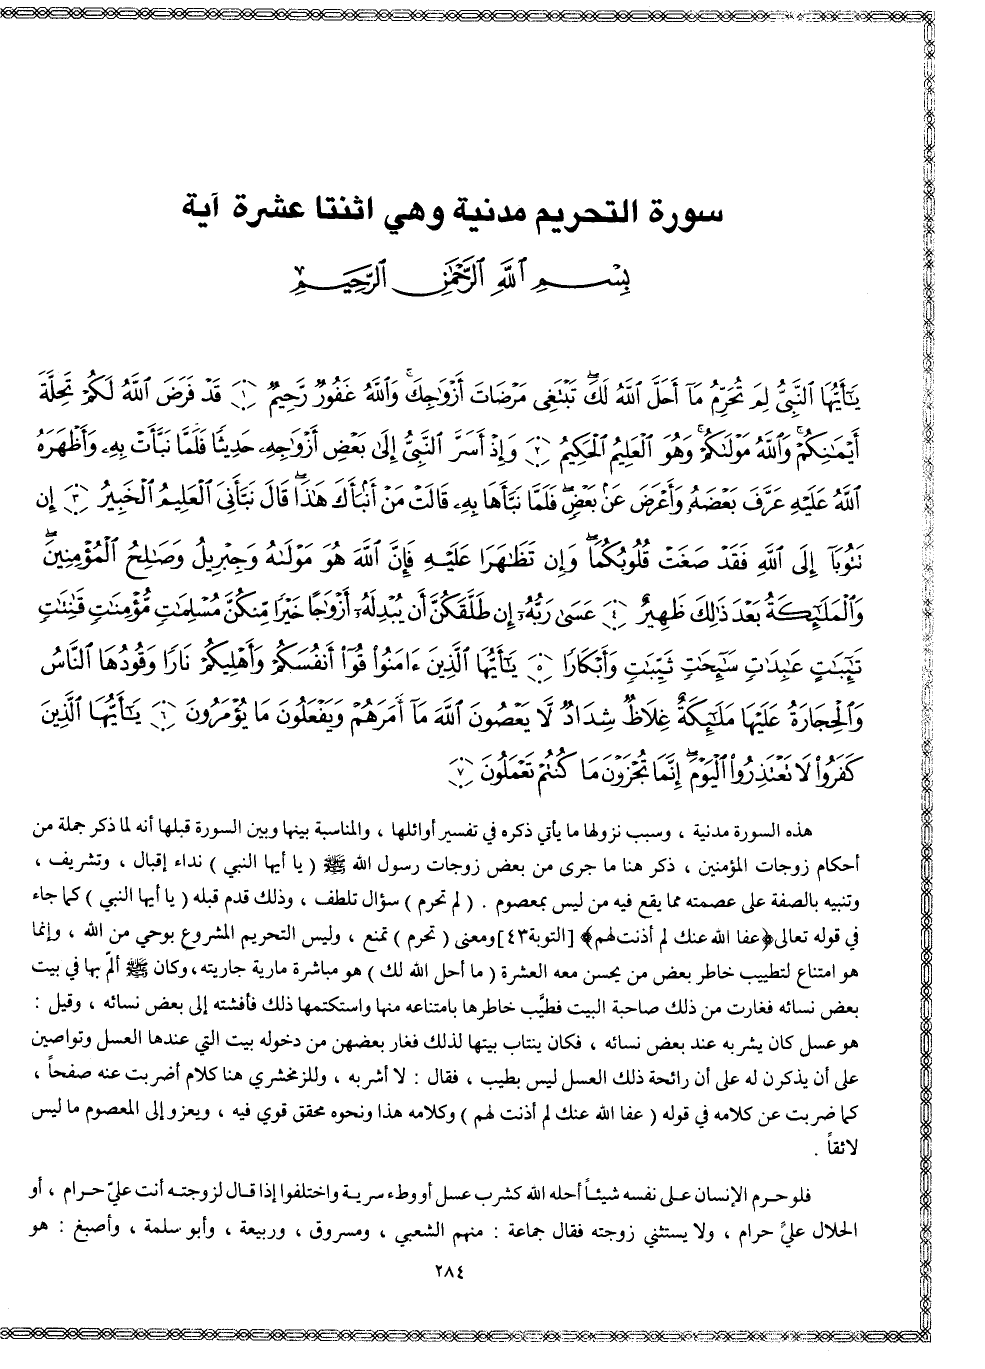 سورة التحريم مدنية وهي اثنتا عشرة آية
بِسْمِ ٱللَّهِ ٱلرَّحْمَٰنِ ٱلرَّحِيمِ
يَٰٓأَيُّهَا ٱلنَّبِىُّ لِمَ تُحَرِّمُ مَآ أَحَلَّ ٱللَّهُ لَكَ ۖ تَبْتَغِى مَرْضَاتَ أَزْوَٰجِكَ ۚ وَٱللَّهُ غَفُورٌ رَّحِيمٌ ﴿١﴾ قَدْ فَرَضَ ٱللَّهُ لَكُمْ تَحِلَّةَ
أَيْمَٰنِكُمْ ۚ وَٱللَّهُ مَوْلَىٰكُمْ ۖ وَهُوَ ٱلْعَلِيمُ ٱلْحَكِيمُ ﴿٢﴾ وَإِذْ أَسَرَّ ٱلنَّبِىُّ إِلَىٰ بَعْضِ أَزْوَٰجِهِۦ حَدِيثًا فَلَمَّا نَبَّأَتْ بِهِۦ وَأَظْهَرَهُ
ٱللَّهُ عَلَيْهِ عَرَّفَ بَعْضَهُۥ وَأَعْرَضَ عَنۢ بَعْضٍ ۖ فَلَمَّا نَبَّأَهَا بِهِۦ قَالَتْ مَنْ أَنۢبَأَكَ هَٰذَا ۖ قَالَ نَبَّأَنِىَ ٱلْعَلِيمُ ٱلْخَبِيرُ ﴿٣﴾ إِن
تَتُوبَآ إِلَى ٱللَّهِ فَقَدْ صَغَتْ قُلُوبُكُمَا ۖ وَإِن تَظَٰهَرَا عَلَيْهِ فَإِنَّ ٱللَّهَ هُوَ مَوْلَىٰهُ وَجِبْرِيلُ وَصَٰلِحُ ٱلْمُؤْمِنِينَ ۖ
وَٱلْمَلَٰٓئِكَةُ بَعْدَ ذَٰلِكَ ظَهِيرٌ ﴿٤﴾ عَسَىٰ رَبُّهُۥٓ إِن طَلَّقَكُنَّ أَن يُبْدِلَهُۥٓ أَزْوَٰجًا خَيْرًا مِّنكُنَّ مُسْلِمَٰتٍ مُّؤْمِنَٰتٍ قَٰنِتَٰتٍ
تَٰٓئِبَٰتٍ عَٰبِدَٰتٍ سَٰٓئِحَٰتٍ ثَيِّبَٰتٍ وَأَبْكَارًا ﴿٥﴾ يَٰٓأَيُّهَا ٱلَّذِينَ ءَامَنُوا۟ قُوٓا۟ أَنفُسَكُمْ وَأَهْلِيكُمْ نَارًا وَقُودُهَا ٱلنَّاسُ
وَٱلْحِجَارَةُ عَلَيْهَا مَلَٰٓئِكَةٌ غِلَاظٌ شِدَادٌ لَّا يَعْصُونَ ٱللَّهَ مَآ أَمَرَهُمْ وَيَفْعَلُونَ مَا يُؤْمَرُونَ ﴿٦﴾ يَٰٓأَيُّهَا ٱلَّذِينَ
كَفَرُوا۟ لَا تَعْتَذِرُوا۟ ٱلْيَوْمَ ۖ إِنَّمَا تُجْزَوْنَ مَا كُنتُمْ تَعْمَلُونَ ﴿٧﴾
هذه السورة مدنية ، وسبب نزولها ما يأتي ذكره في تفسير أوائلها ، والمناسبة بينها وبين السورة قبلها أنه لما ذكر جملة من
أحكام زوجات المؤمنين ، ذكر هنا ما جرى من بعض زوجات رسول الله ﷺ ( يا أيها النبي ) نداء إقبال ، وتشريف ،
وتنبيه بالصفة على عصمته مما يقع فيه من ليس بمعصوم . ( لم تحرم ) سؤال تلطف ، وذلك قدم قبله ( يا أيها النبي ) كما جاء
في قوله تعالى ﴿عفا الله عنك لم أذنت لهم﴾ [التوبة٤٣] ومعنى ( تحرم ) تمنع ، وليس التحريم المشروع بوحي من الله ، وإنما
هو امتناع لتطييب خاطر بعض من يحسن معه العشرة ( ما أحل الله لك ) هو مباشرة مارية جاريته ، وكان ﷺ ألمّ بها في بيت
بعض نسائه فغارت من ذلك صاحبة البيت فطيَّب خاطرها بامتناعه منها واستكتمها ذلك فأفشته إلى بعض نسائه ، وقيل :
هو عسل كان يشربه عند بعض نسائه ، فكان ينتاب بيتها لذلك فغار بعضهن من دخوله بيت التي عندها العسل وتواصين
على أن يذكرن له على أن رائحة ذلك العسل ليس بطيب ، فقال : لا أشربه ، وللزمخشري هنا كلام أضربت عنه صفحاً ،
كما ضربت عن كلامه في قوله ( عفا الله عنك لم أذنت لهم ) وكلامه هذا ونحوه محقق قوي فيه ، ويعزو إلى المعصوم ما ليس
لائقاً .
فلو حرم الإنسان على نفسه شيئاً أحله الله كشرب عسل أو وطء سرية واختلفوا إذا قال لزوجته أنت عليّ حرام ، أو
الحلال عليَّ حرام ، ولا يستثني زوجته فقال جماعة : منهم الشعبي ، ومسروق ، وربيعة ، وأبو سلمة ، وأصبغ : هو
٢٨٤